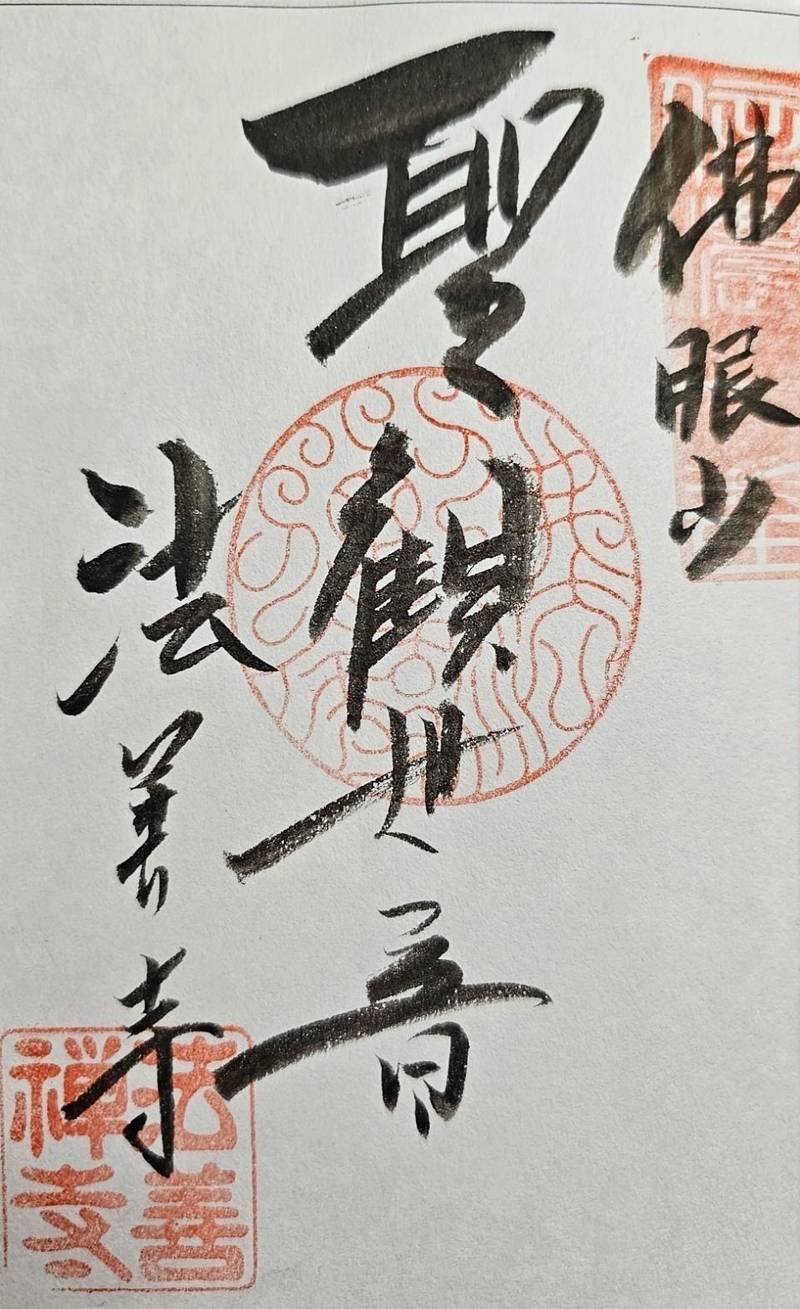 佛眼山
聖観世音
法善寺
法善禅寺